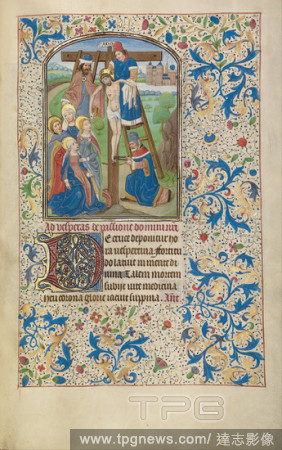 Ad vesperas de passione domini
De cruce deponitur ho
ra vespertina fortitu
do latuit in mente di
vina Talem mortem
subiit vite medicina
heu corona glorie iacuit supina Ant
TPG
www.tpgnews.com/達志影像